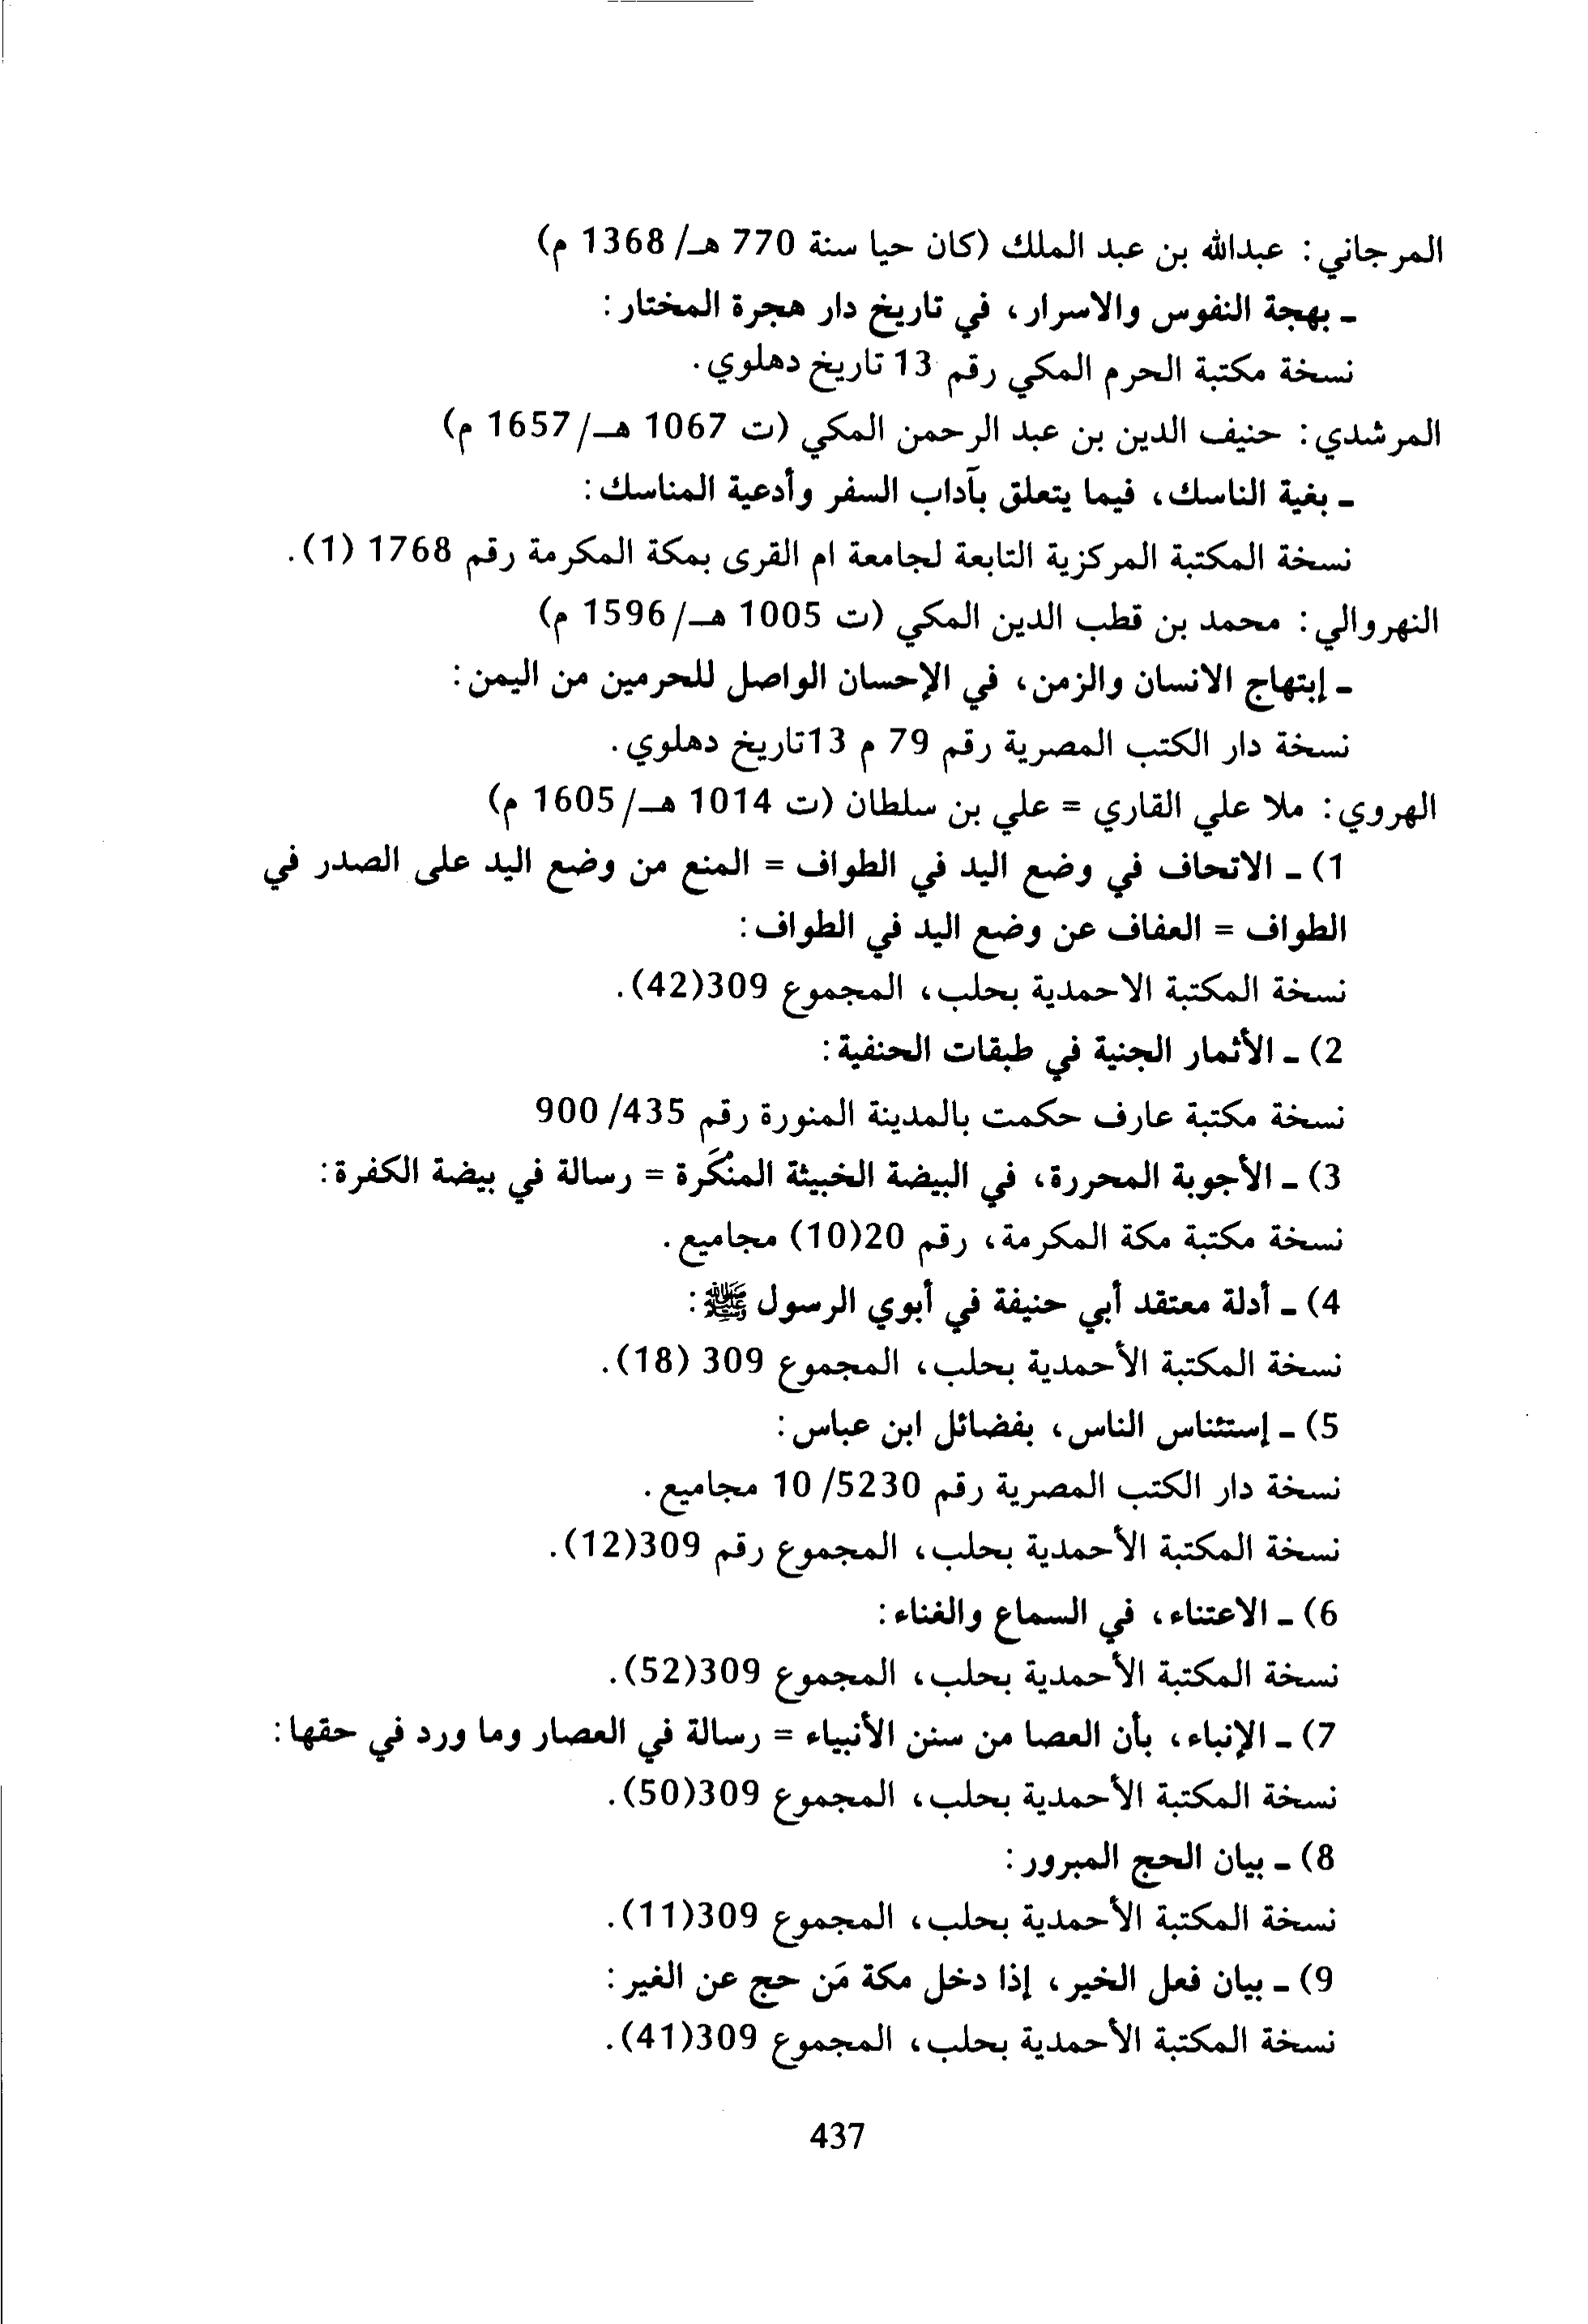 المرجاني: عبدالله بن عبد الملك (كان حيا سنة 770 هـ/ 1368 م)
ـ بهجة النفوس والاسرار، في تاريخ دار هجرة المختار:
نسخة مكتبة الحرم المكي رقم 13 تاريخ دهلوي.
المرشدي: حنيف الدين بن عبد الرحمن المكي (ت 1067 هـ/ 1657 م)
ـ بغية الناسك، فيما يتعلق بآداب السفر وأدعية المناسك:
نسخة المكتبة المركزية التابعة لجامعة ام القرى بمكة المكرمة رقم 1768 (1).
النهروالي: محمد بن قطب الدين المكي (ت 1005 هـ/ 1596 م)
ـ إبتهاج الانسان والزمن، في الإحسان الواصل للحرمين من اليمن:
نسخة دار الكتب المصرية رقم 79 م 13تاريخ دهلوي.
الهروي: ملا علي القاري = علي بن سلطان (ت 1014 هـ/ 1605 م)
1) ـ الاتحاف في وضع اليد في الطواف = المنع من وضع اليد على الصدر في
الطواف = العفاف عن وضع اليد في الطواف:
نسخة المكتبة الاحمدية بحلب، المجموع 309(42).
2) ـ الأثمار الجنية في طبقات الحنفية:
نسخة مكتبة عارف حكمت بالمدينة المنورة رقم 435/ 900
3) ـ الأجوبة المحررة، في البيضة الخبيثة المنْكَرة = رسالة في بيضة الكفرة:
نسخة مكتبة مكة المكرمة، رقم 20(10) مجاميع.
4) ـ أدلة معتقد أبي حنيفة في أبوي الرسول ﷺ:
نسخة المكتبة الأحمدية بحلب، المجموع 309 (18).
5) ـ إستئناس الناس، بفضائل ابن عباس:
نسخة دار الكتب المصرية رقم 5230/ 10 مجاميع.
نسخة المكتبة الأحمدية بحلب، المجموع رقم 309(12).
6) ـ الاعتناء، في السماع والغناء:
نسخة المكتبة الأحمدية بحلب، المجموع 309(52).
7) ـ الإنباء، بأن العصا من سنن الأنبياء = رسالة في العصار وما ورد في حقها:
نسخة المكتبة الأحمدية بحلب، المجموع 309(50).
8) ـ بيان الحج المبرور:
نسخة المكتبة الأحمدية بحلب، المجموع 309(11).
9) ـ بيان فعل الخير، إذا دخل مكة مَن حج عن الغير:
نسخة المكتبة الأحمدية بحلب، المجموع 309(41).
437